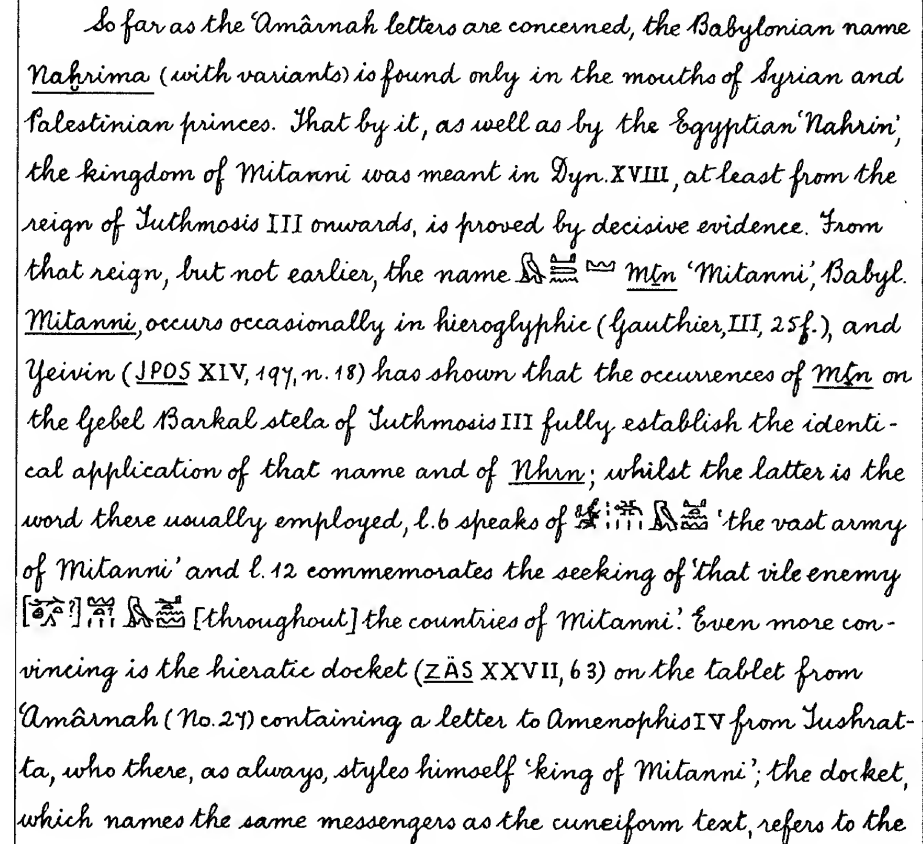 So far as the ‘Amârnah letters are concerned, the Babylonian name
Naḫrima (with variants) is found only in the mouths of Syrian and
Palestinian princes. That by it, as well as by the Egyptian ‘Nahrin’,
the kingdom of Mitanni was meant in Dyn. XVIII, at least from the
reign of Tuthmosis III onwards, is proved by decisive evidence. From
that reign, but not earlier, the name Mṯn ‘Mitanni’, Babyl.
Mitanni, occurs occasionally in hieroglyphic (Gauthier, III, 25f.), and
Yeivin (JPOS XIV, 197, n. 18) has shown that the occurrences of Mṯn on
the Gebel Barkal stela of Tuthmosis III fully establish the identi-
cal application of that name and of Nhrn; whilst the latter is the
word there usually employed, l. 6 speaks of ‘the vast army
of Mitanni’ and l. 12 commemorates the seeking of ‘that vile enemy
[throughout] the countries of Mitanni’. Even more con-
vincing is the hieratic docket (ZÄS XXVII, 63) on the tablet from
‘Amârnah (No. 27) containing a letter to Amenophis IV from Tushrat-
ta, who there, as always, styles himself ‘king of Mitanni’; the docket,
which names the same messengers as the cuneiform text, refers to the